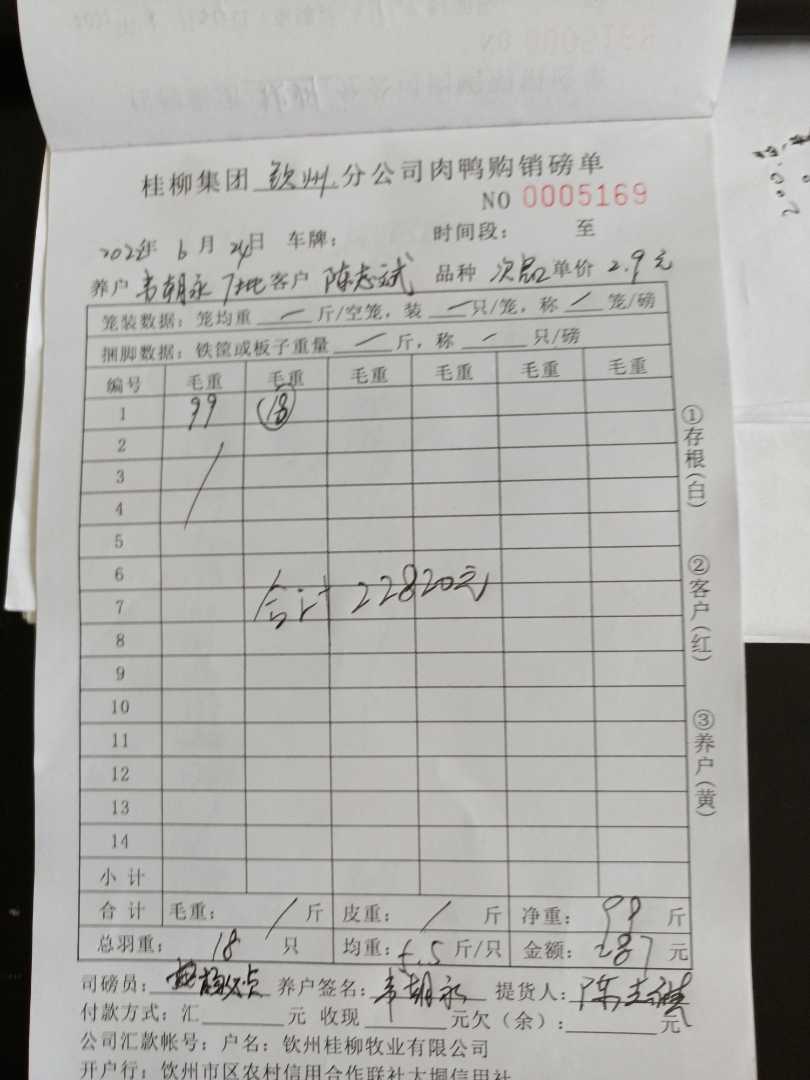 桂柳集团 钦州 分公司肉鸭购销磅单
NO 0005169
年 6 月 24 日 车牌： 时间段： 至
养户 韦朝永 客户 陈志斌 品种 次品 单价 2.9元
笼装数据：笼均重 / 斤/空笼，装 / 只/笼，称 / 笼/磅
捆脚数据：铁筐或板子重量 / 斤，称 / 只/磅
编号 毛重 毛重 毛重 毛重 毛重 毛重
1 99 18
2
3
4
5
6
7
合计 22820元
8
9
10
11
12
13
14
小 计
合 计 毛重： / 斤 皮重： / 斤 净重： 99 斤
总羽重： 18 只 均重： 5.5 斤/只 金额： 287 元
司磅员： 养户签名： 韦朝永 提货人： 陈志斌
付款方式：汇 元 收现 元欠（余）： 元
公司汇款帐号：户名：钦州桂柳牧业有限公司
开户行：钦州市区农村信用合作联社大垌信用社
①存根（白）
②客户（红）
③养户（黄）